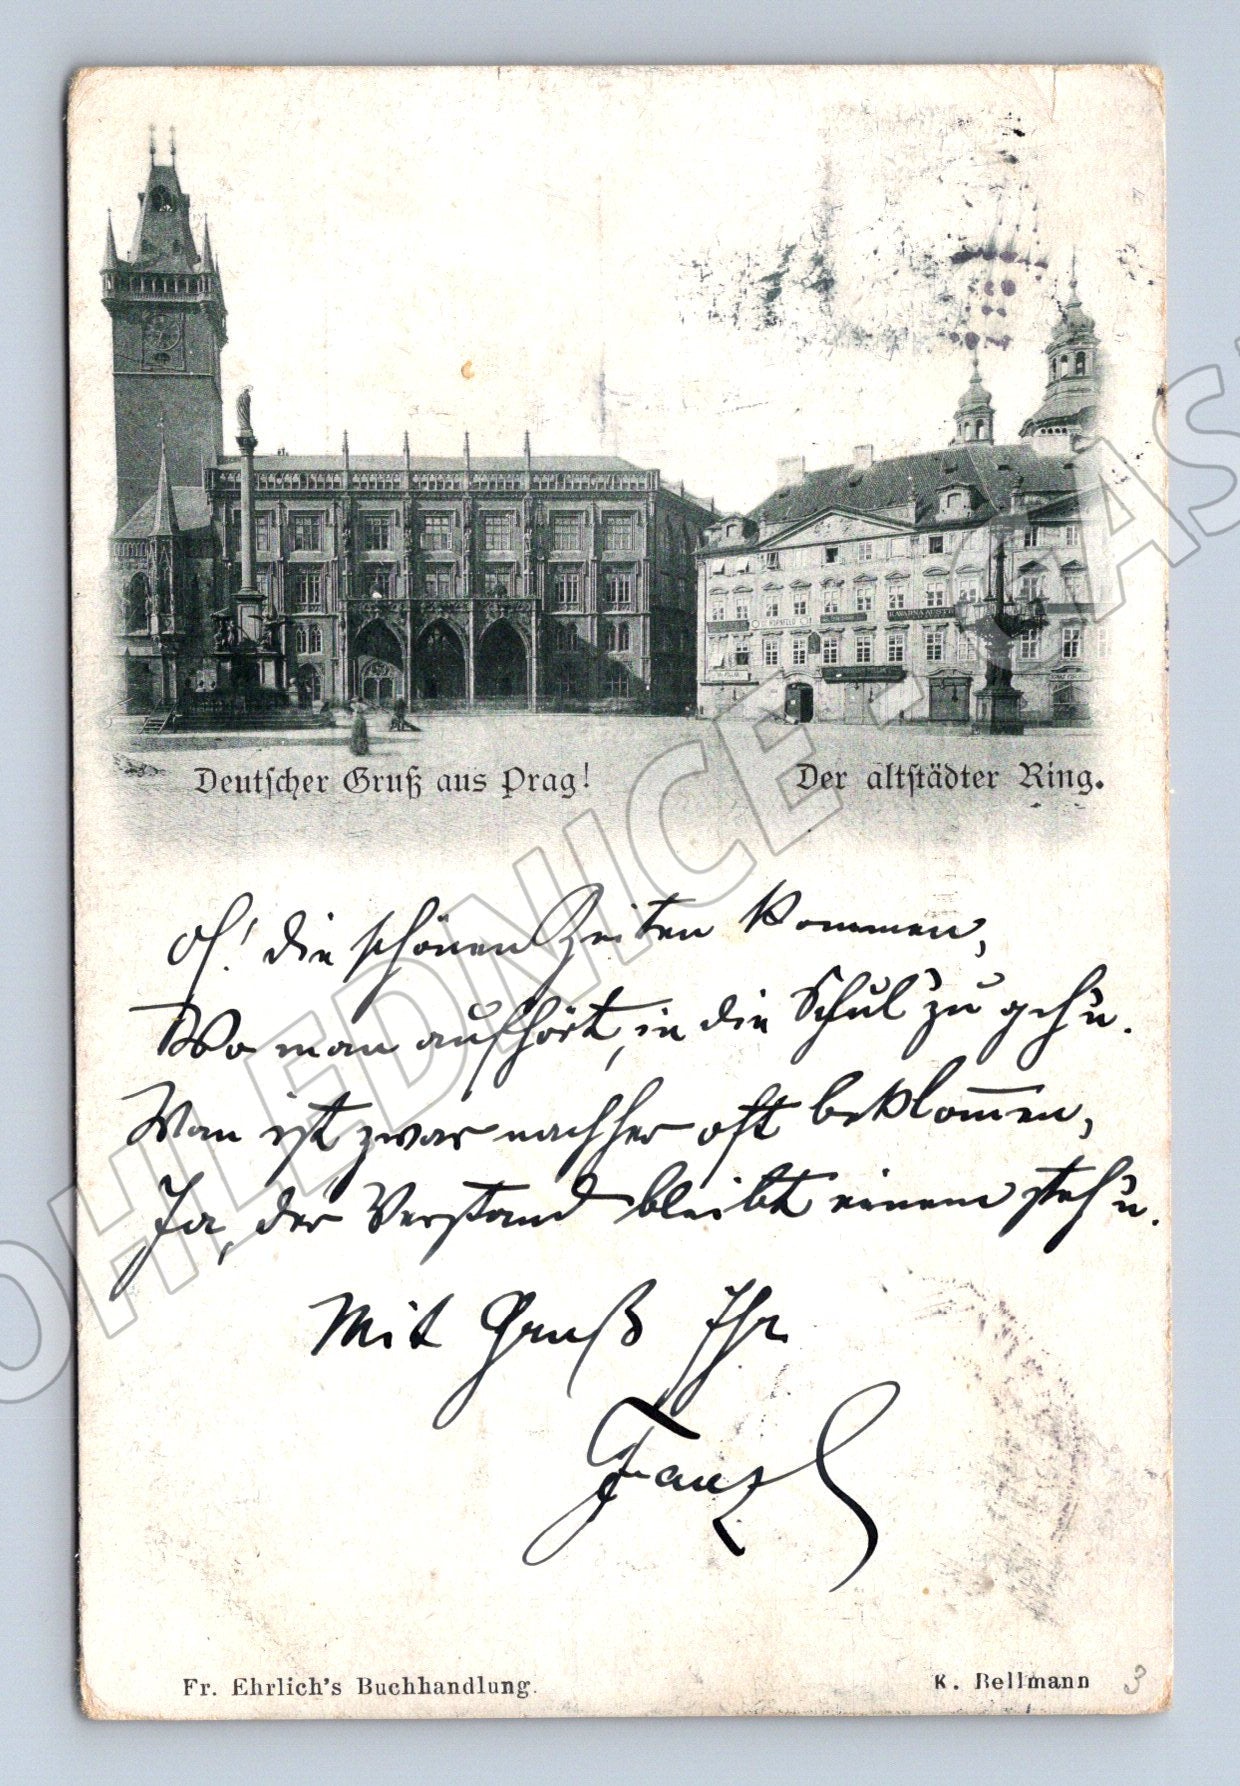 Deutscher Gruß aus Prag!
Der altstädter Ring.
O! die schönen Zeiten kommen,
Wo man aufhört, in die Schul' zu geh'n.
Man ist zwar nachher oft beklom̄en,
Ja, der Verstand bleibt einem steh'n.
Mit Gruß Ihr
Franzl
Fr. Ehrlich's Buchhandlung.
K. Bellmann
3
POHLEDNICE - CAS